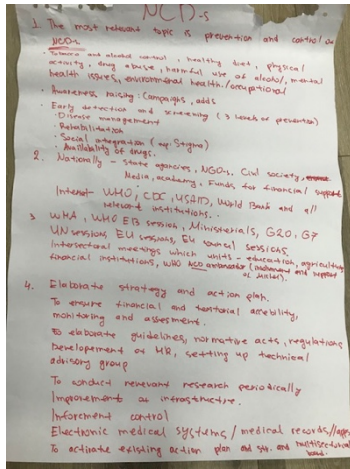 NCD-s
1. The most relevant topic is prevention and control on
NCD-s
· Tobacco and alcohol control, healthy diet, physical
activity, drug abuse, harmful use of alcohol, mental
health issues, environmental health/occupational
· Awareness raising: campaighs, adds
· Early detection and screening (3 levels of prevention)
· Disease management
· Rehabilitation
· Social integration (eg. Stigma)
· Availability of drugs.
2. Nationally - state agencies, NGO-s, Civil society,
Media, academy, Funds for financial support
Internat WHO, CDC, USAID, World Bank and all
relevant institutions.
3 WHA, WHO EB session, Ministerials, G20, G7
UN sessions, EU sessions, EU counsel sessions.
Intersectoral meetings which units - education, agriculture
financial institutions, WHO NCD ambasador (instrument and support
at
4. Elaborate strategy and action plan.
To ensure financial and
monitoring and assesment.
To elaborate guidelines, normative acts, regulations
Developement of HR, setting up technical
advisory group
To conduct relevant research periodically
Improvement of infrastructure.
Inforcment control
Electronic medical systems / medical records/
To activate existing action plan and str. and multisectoral
board.